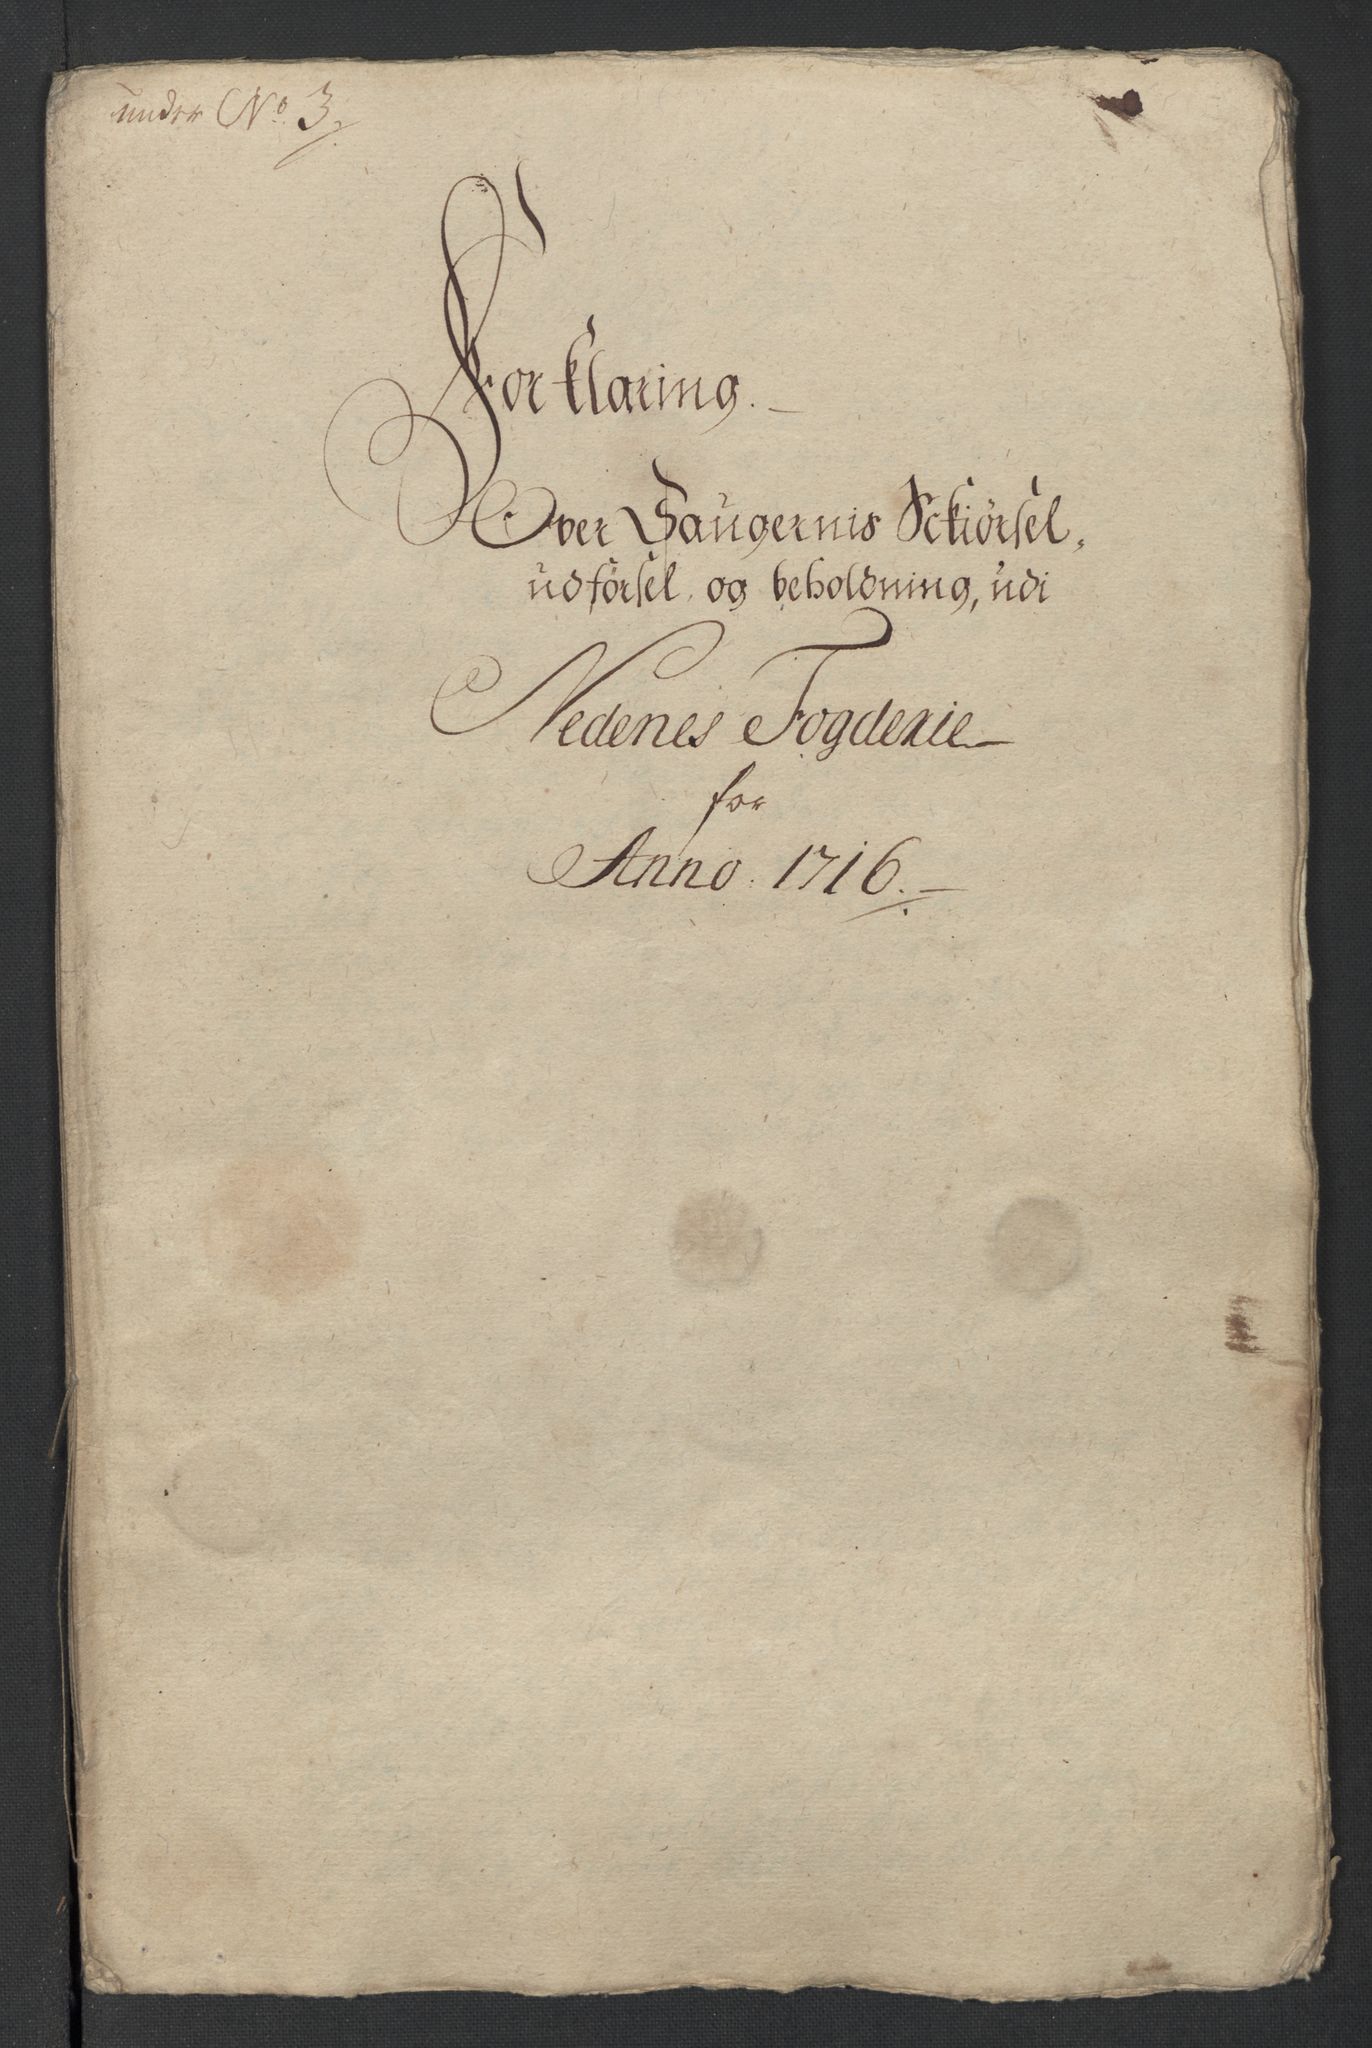 under No 3.
Forklaring.
Over Saugernis Schiørsel,
udførsel, og beholdning, udi
Nedenes Fogderie
for
Anno 1716.